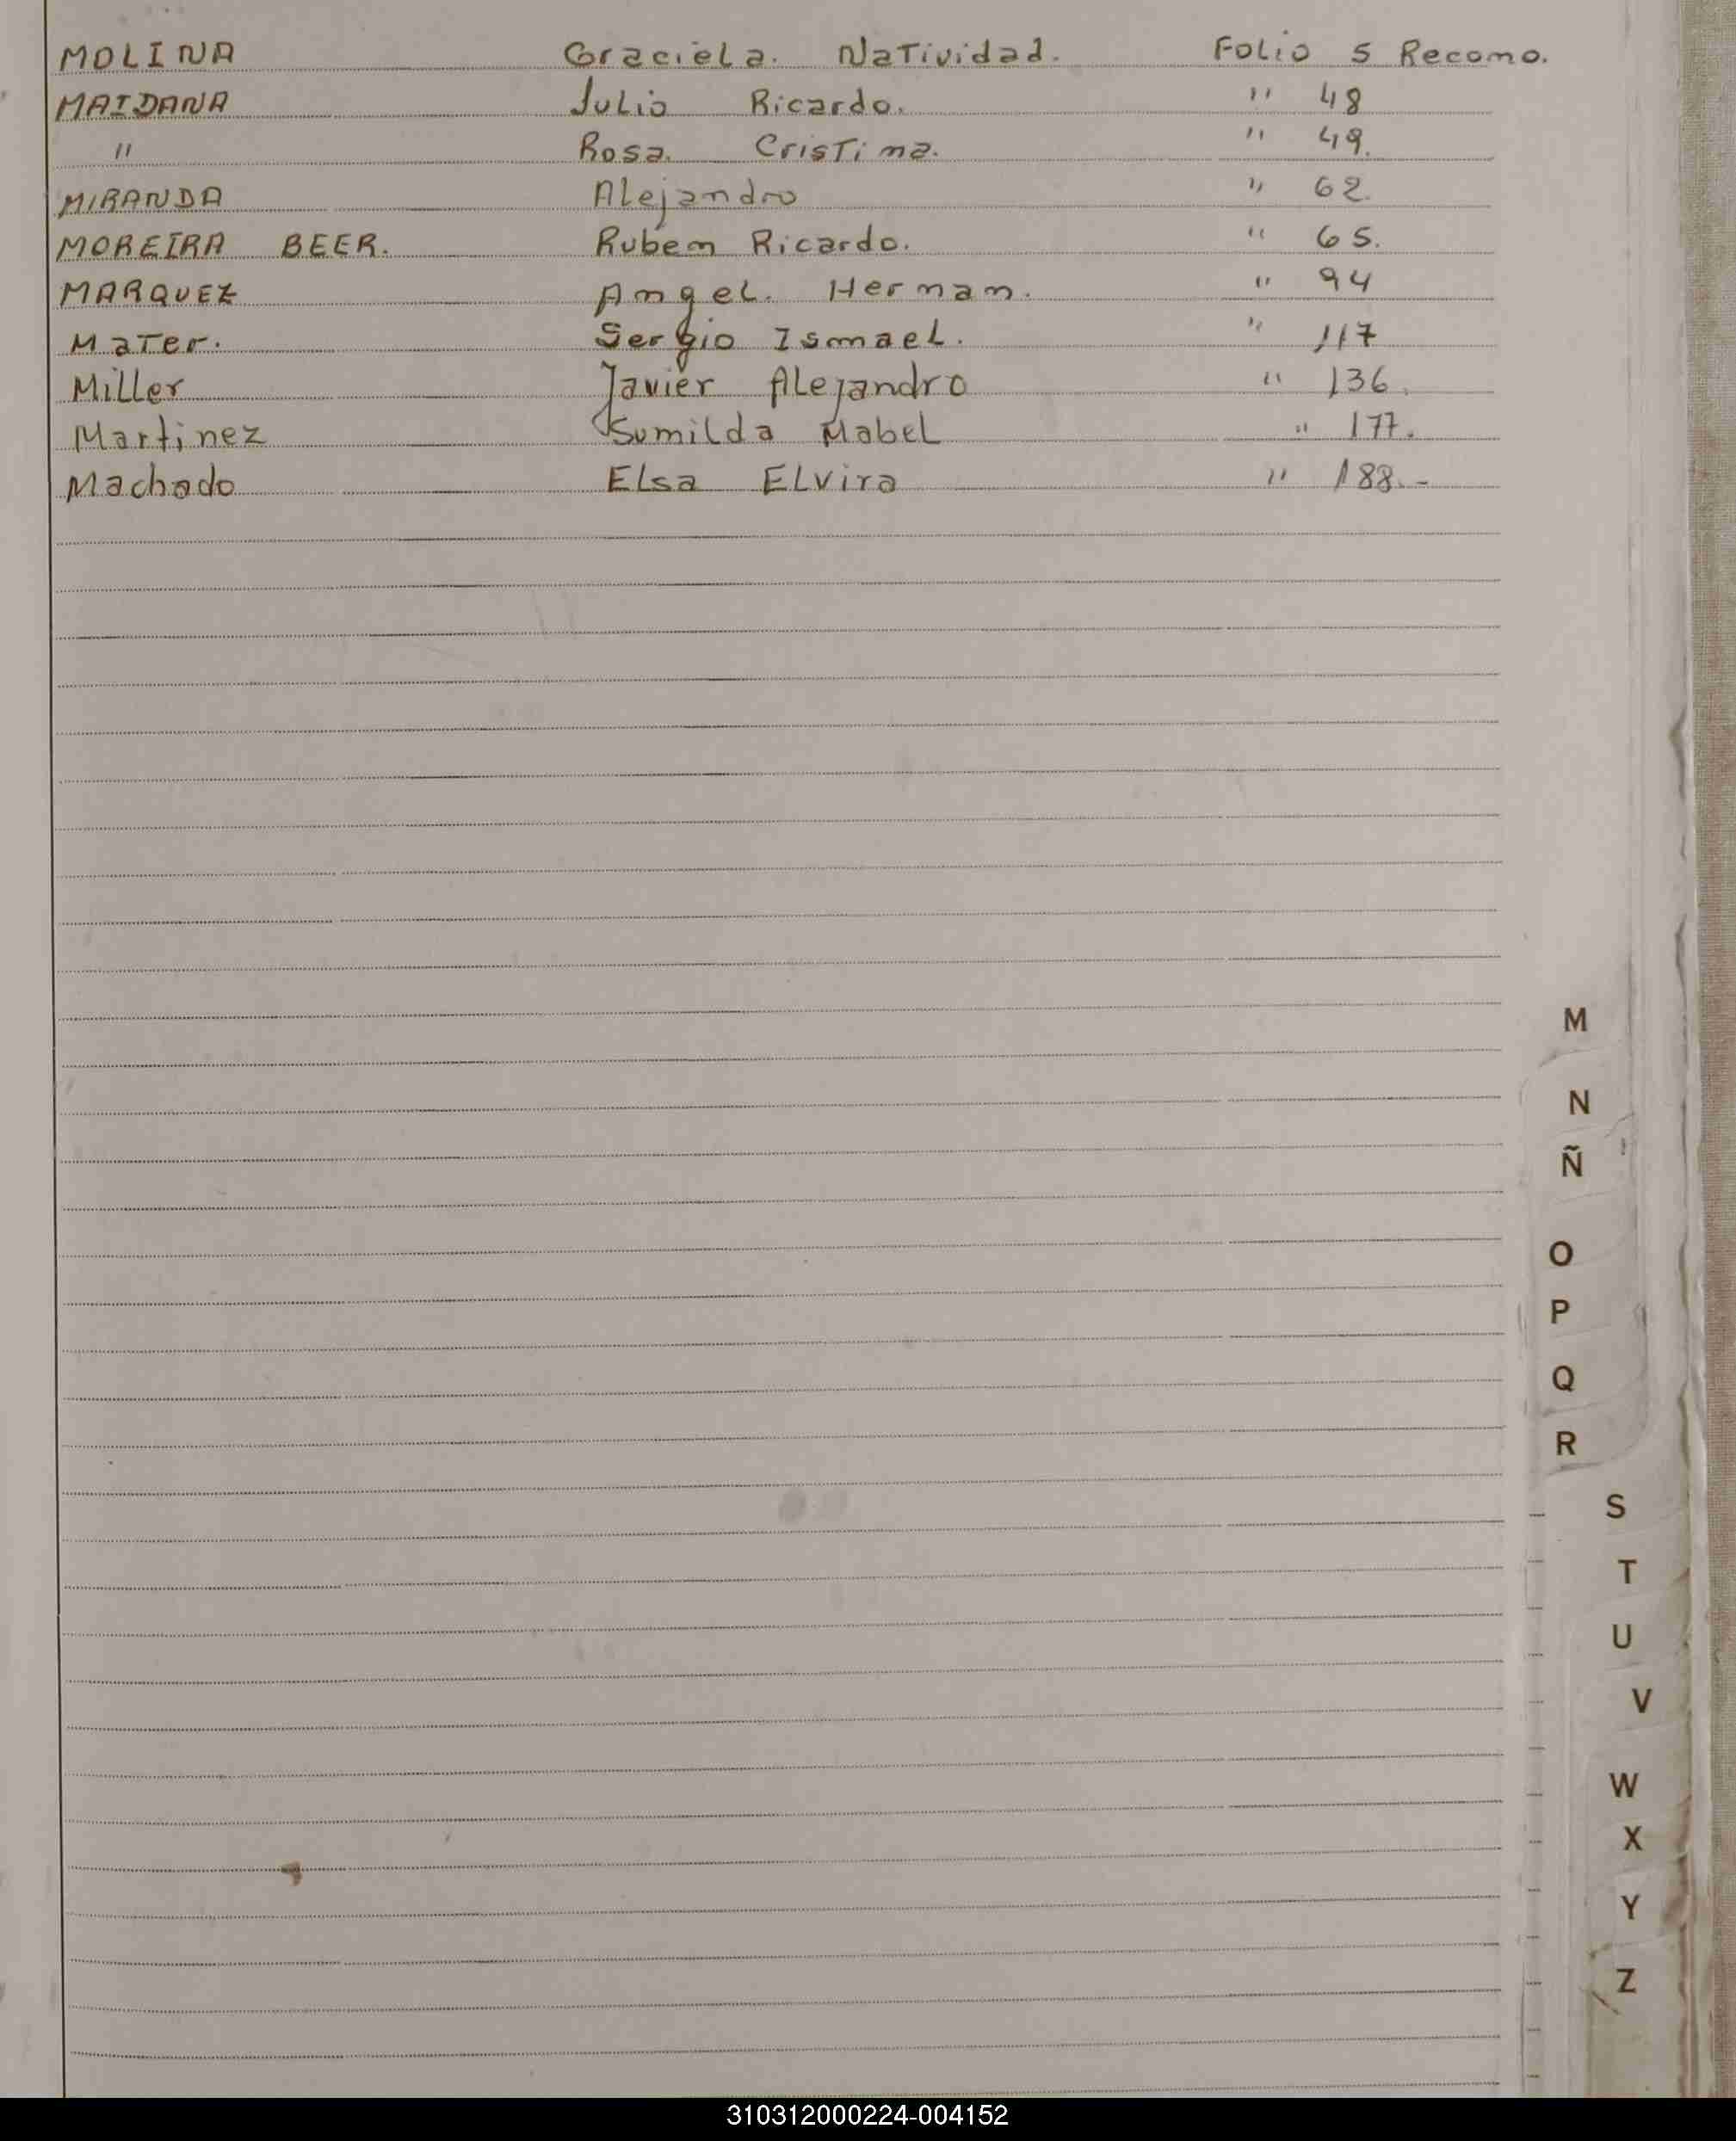 MOLINA Graciela. Natividad. Folio 5 Recono.
MAIDANA Julio Ricardo. " 48
" Rosa. Cristina. " 49.
MIRANDA Alejandro " 62.
MOREIRA BEER. Ruben Ricardo. " 65.
MARQUEZ Angel. Hernan. " 94
Mater. Sergio Ismael. " 117
Miller Javier Alejandro " 136.
Martinez Sumilda Mabel " 177.
Machado Elsa Elvira " 188.-
M
N
Ñ
O
P
Q
R
S
T
U
V
W
X
Y
Z
310312000224-004152